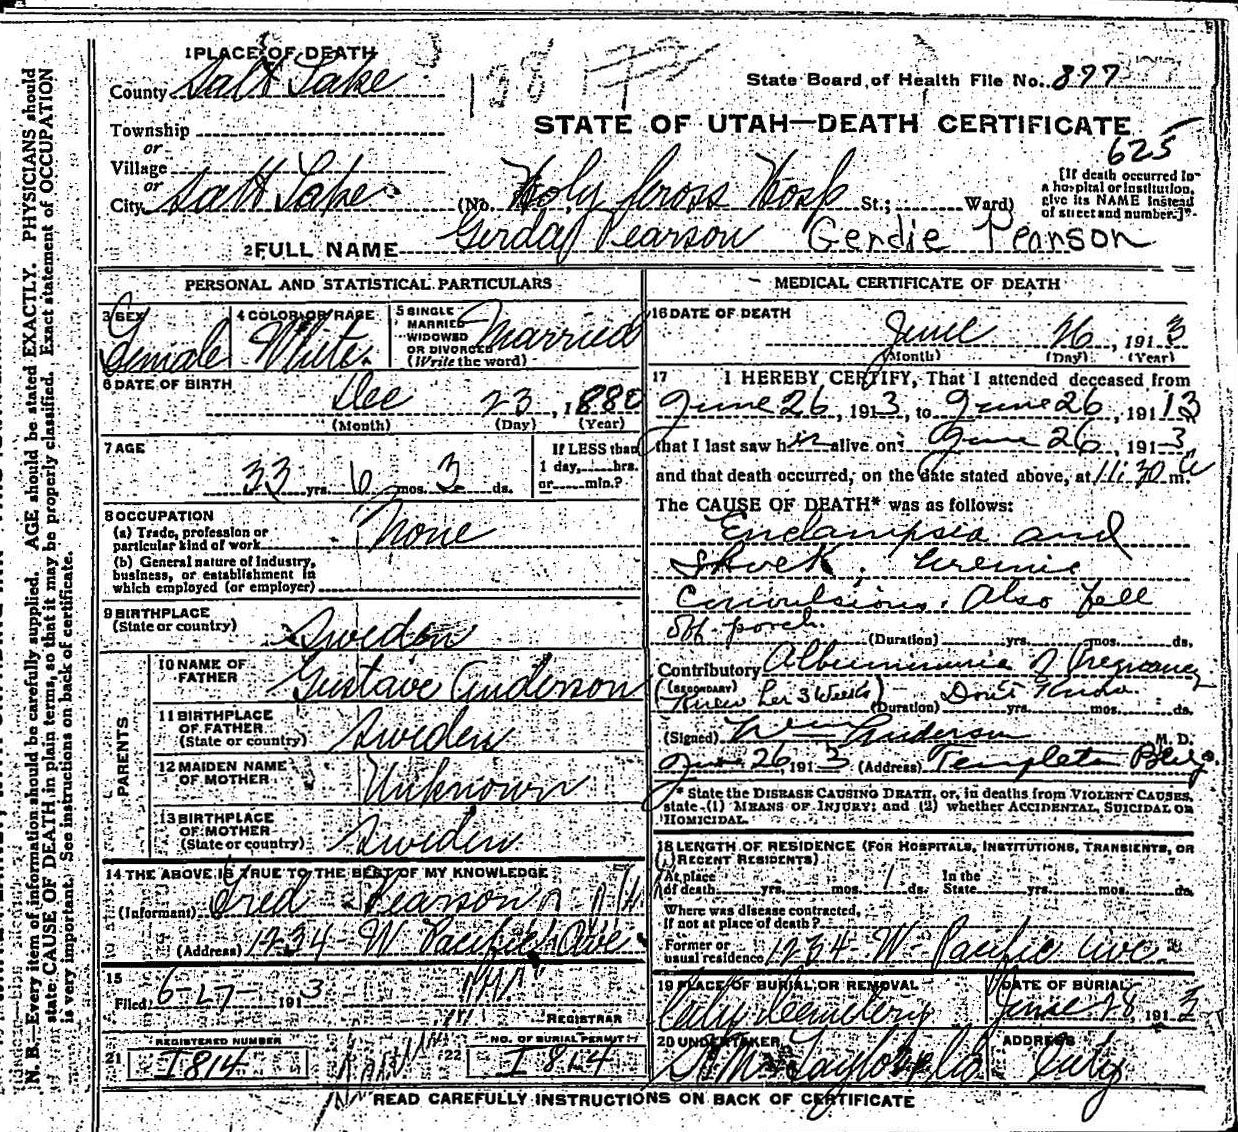 1 PLACE OF DEATH
County Salt Lake
State Board of Health File No. 877
Township
or
Village
or
City Salt Lake
STATE OF UTAH—DEATH CERTIFICATE
625
(No. Holy Cross Hosp St.; Ward)
[If death occurred in
a hospital or institution,
give its NAME instead
of street and number.]
2 FULL NAME Gerda Pearson Gerdie Pearson
PERSONAL AND STATISTICAL PARTICULARS
3 SEX
Female
4 COLOR OR RACE
White
5 SINGLE
MARRIED
WIDOWED
OR DIVORCED
(Write the word)
Married
6 DATE OF BIRTH
Dec 23, 1880
(Month) (Day) (Year)
7 AGE
33 yrs. 6 mos. 3 ds.
If LESS than
1 day, hrs.
or min.?
8 OCCUPATION
(a) Trade, profession or
particular kind of work None
(b) General nature of industry,
business, or establishment in
which employed (or employer)
9 BIRTHPLACE
(State or country) Sweden
PARENTS
10 NAME OF
FATHER Gustave Anderson
11 BIRTHPLACE
OF FATHER
(State or country) Sweden
12 MAIDEN NAME
OF MOTHER Unknown
13 BIRTHPLACE
OF MOTHER
(State or country) Sweden
14 THE ABOVE IS TRUE TO THE BEST OF MY KNOWLEDGE
(Informant) Fred Pearson
(Address) 1234 W Pacific Ave
15
Filed 6-27- 1913
REGISTRAR
21 REGISTERED NUMBER
I814
22 NO. OF BURIAL PERMIT
I814
MEDICAL CERTIFICATE OF DEATH
16 DATE OF DEATH
June 26, 1913
(Month) (Day) (Year)
17 I HEREBY CERTIFY, That I attended deceased from
June 26, 1913, to June 26, 19113
that I last saw her alive on June 26, 1913
and that death occurred, on the date stated above, at 11:30 m.
The CAUSE OF DEATH* was as follows:
Enclampsia and
Shock. Uremic
Convulsions. Also fell
off porch.
(Duration) yrs. mos. ds.
Contributory Albuminuria of Pregnancy
(SECONDARY)
Knew her 3 weeks (Duration) Don't Know yrs. mos. ds.
(Signed) Wm Anderson M. D.
June 26, 1913 (Address) Templeton Bldg.
* State the DISEASE CAUSING DEATH, or, in deaths from VIOLENT CAUSES,
state (1) MEANS OF INJURY; and (2) whether ACCIDENTAL, SUICIDAL OR
HOMICIDAL.
18 LENGTH OF RESIDENCE (FOR HOSPITALS, INSTITUTIONS, TRANSIENTS, OR
RECENT RESIDENTS)
At place
of death yrs. mos. 1 ds. In the
State yrs. mos. ds.
Where was disease contracted,
if not at place of death?
Former or
usual residence 1234 W Pacific Ave.
19 PLACE OF BURIAL OR REMOVAL
City Cemetery
DATE OF BURIAL
June 28, 1913
20 UNDERTAKER
S. M. Taylor & Co
ADDRESS
City
READ CAREFULLY INSTRUCTIONS ON BACK OF CERTIFICATE
N. B.—Every item of information should be carefully supplied. AGE should be stated EXACTLY. PHYSICIANS should
state CAUSE OF DEATH in plain terms, so that it may be properly classified. Exact statement of OCCUPATION
is very important. See instructions on back of certificate.